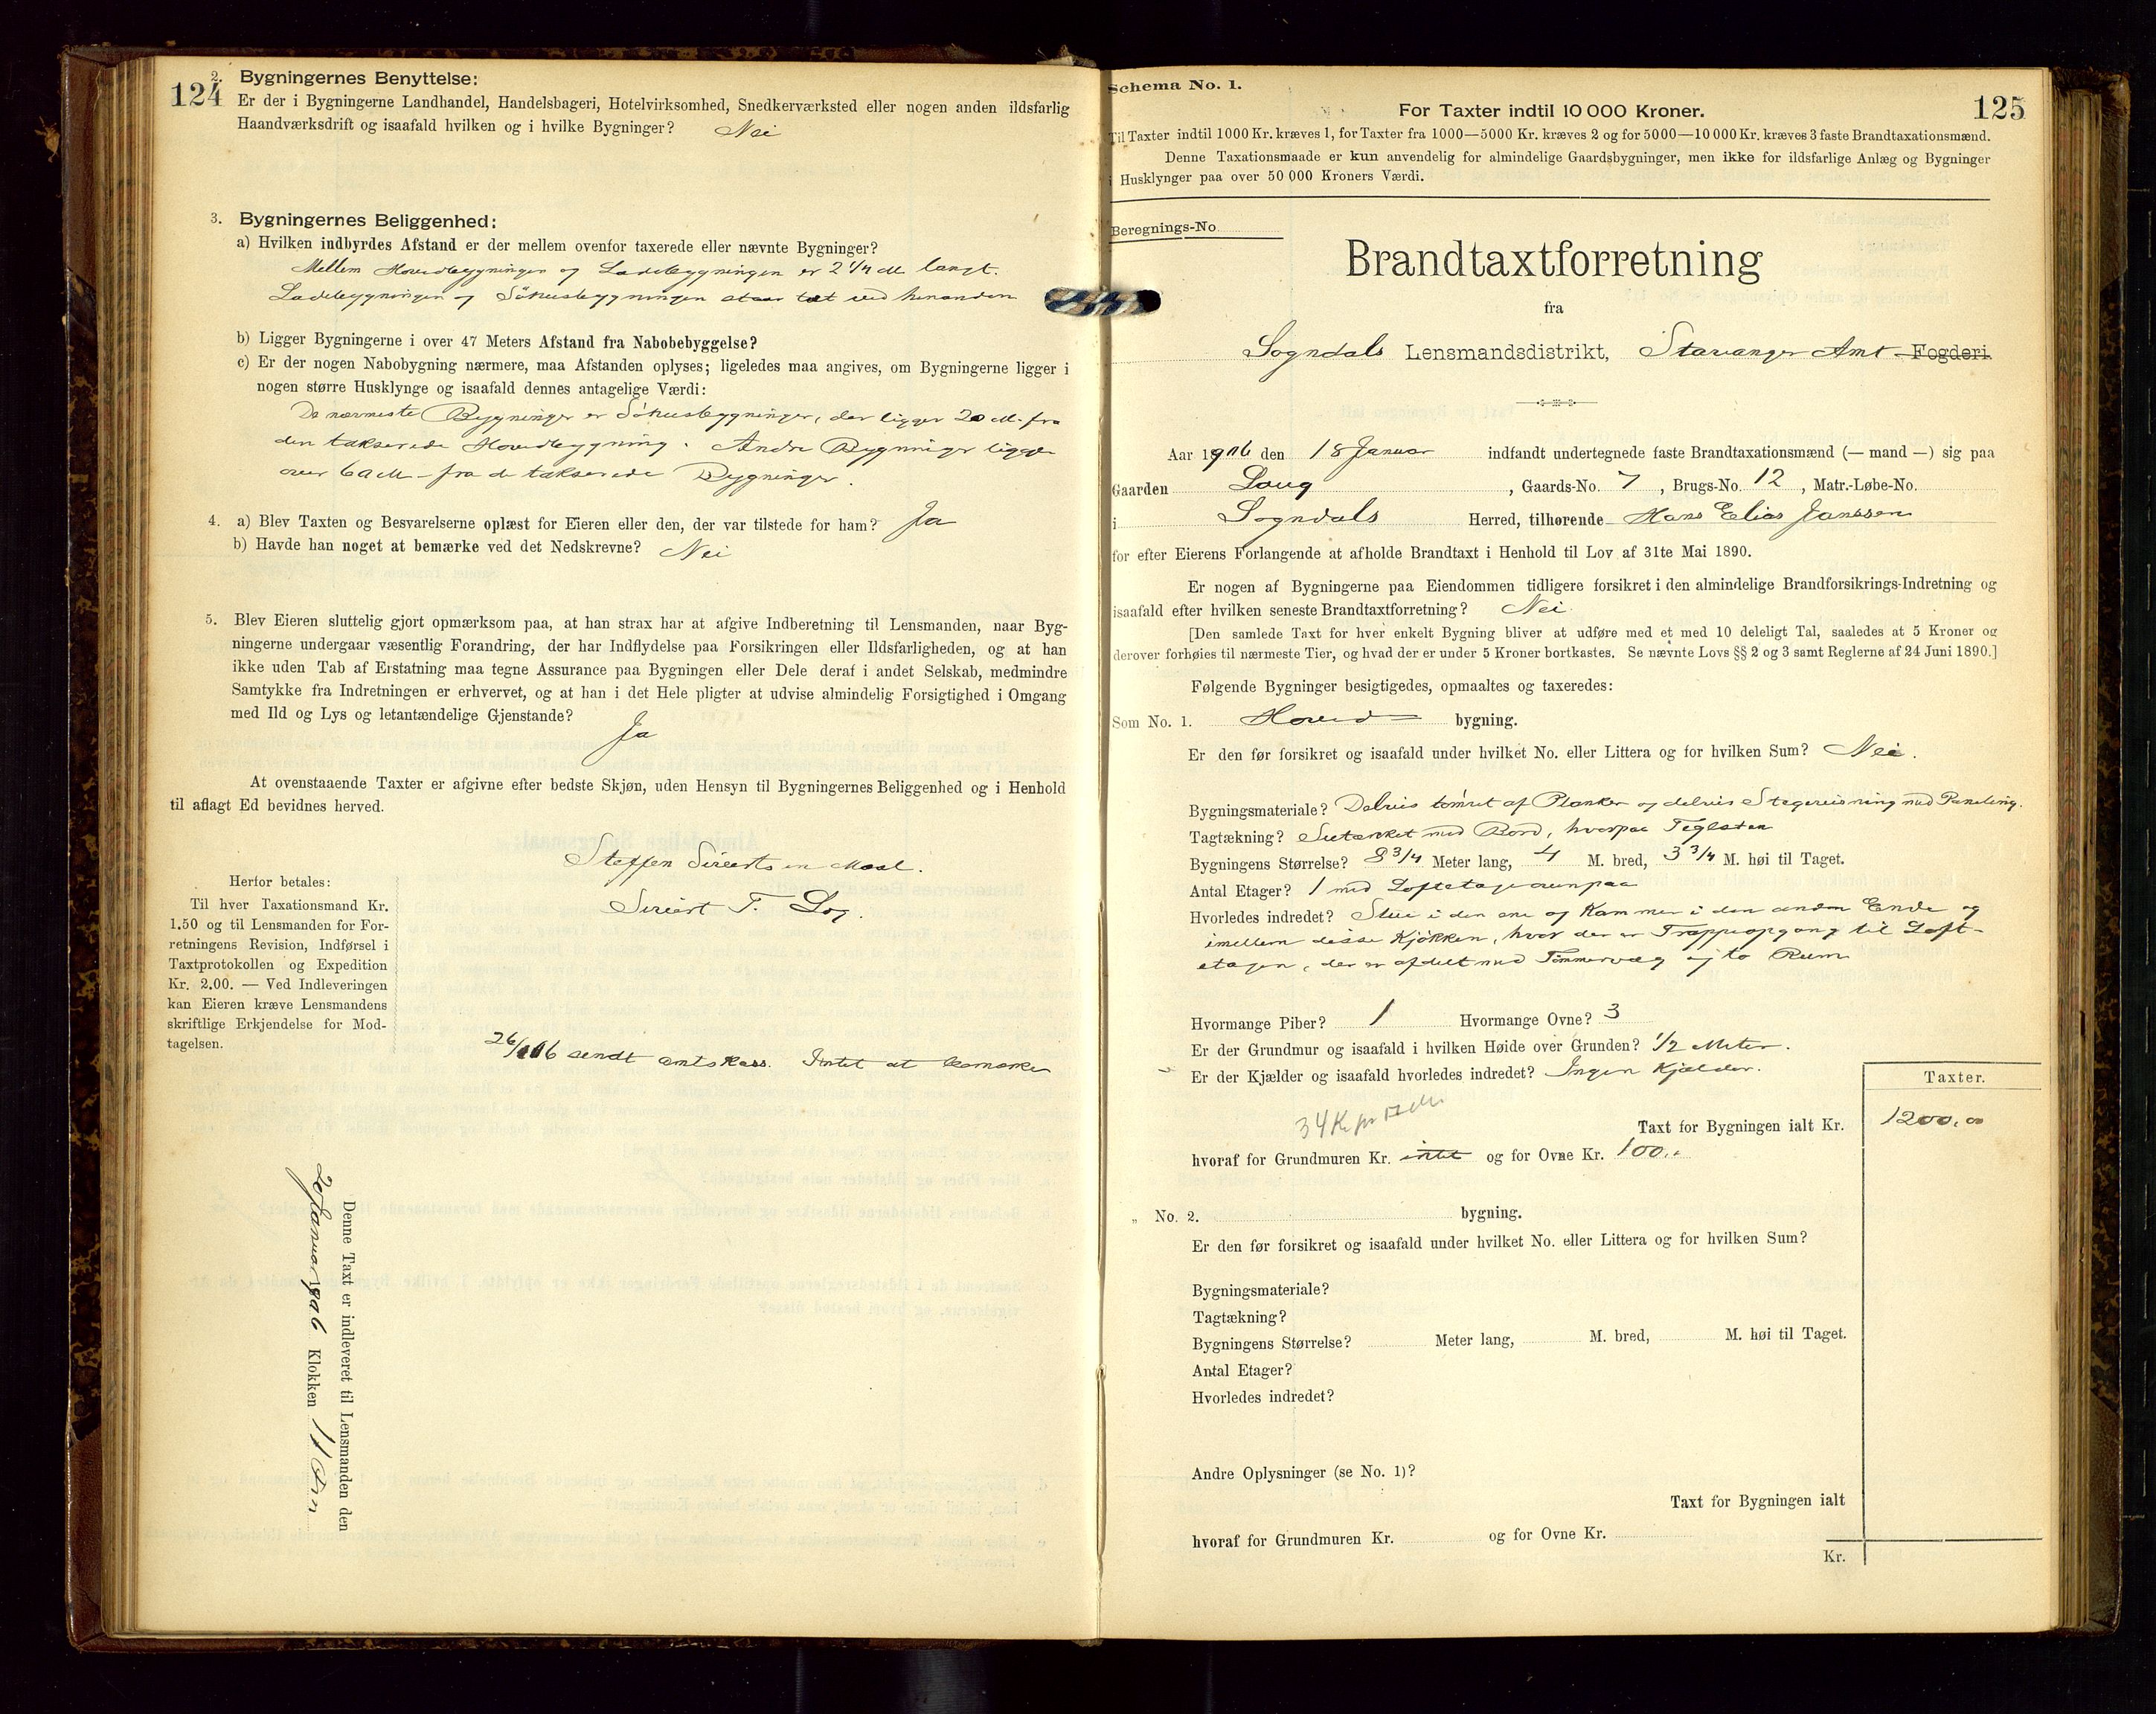 124
2. Bygningernes Benyttelse:
Er der i Bygningerne Landhandel, Handelsbageri, Hotelvirksomhed, Snedkerværksted eller nogen anden ildsfarlig
Haandværksdrift og isaafald hvilken og i hvilke Bygninger? Nei
3. Bygningernes Beliggenhed:
a) Hvilken indbyrdes Afstand er der mellem ovenfor taxerede eller nævnte Bygninger?
Mellem Hovedbygningen og Ladebygningen er 2 1/4 M. langt.
Ladebygningen og Söhusbygningen staar tæt ved hinanden
b) Ligger Bygningerne i over 47 Meters Afstand fra Nabobebyggelse?
c) Er der nogen Nabobygning nærmere, maa Afstanden oplyses; ligeledes maa angives, om Bygningerne ligger i
nogen større Husklynge og isaafald dennes antagelige Værdi:
De nærmeste Bygninger er Söhusbygninger, der ligger 20 M. fra
den takserede Hovedbygning. Andre Bygninger ligger
over 60 M fra de takserede Bygninger.
4. a) Blev Taxten og Besvarelserne oplæst for Eieren eller den, der var tilstede for ham? Ja
b) Havde han noget at bemærke ved det Nedskrevne? Nei
5. Blev Eieren sluttelig gjort opmærksom paa, at han strax har at afgive Indberetning til Lensmanden, naar Byg-
ningerne undergaar væsentlig Forandring, der har Indflydelse paa Forsikringen eller Ildsfarligheden, og at han
ikke uden Tab af Erstatning maa tegne Assurance paa Bygningen eller Dele deraf i andet Selskab, medmindre
Samtykke fra Indretningen er erhvervet, og at han i det Hele pligter at udvise almindelig Forsigtighed i Omgang
med Ild og Lys og letantændelige Gjenstande? Ja
At ovenstaaende Taxter er afgivne efter bedste Skjøn, uden Hensyn til Bygningernes Beliggenhed og i Henhold
til aflagt Ed bevidnes herved.
Steffen Sivertsen
Sivert T. Log.
Herfor betales:
Til hver Taxationsmand Kr.
1.50 og til Lensmanden for For-
retningens Revision, Indførsel i
Taxtprotokollen og Expedition
Kr. 2.00. — Ved Indleveringen
kan Eieren kræve Lensmandens
skriftlige Erkjendelse for Mod-
tagelsen.
sendt amtskass. Intet at bemærke
Denne Taxt er indleveret til Lensmanden den
20 Januar 1906 Klokken 11 Fm
Schema No. 1.
125
For Taxter indtil 10 000 Kroner.
Til Taxter indtil 1000 Kr. kræves 1, for Taxter fra 1000—5000 Kr. kræves 2 og for 5000—10 000 Kr. kræves 3 faste Brandtaxationsmænd.
Denne Taxationsmaade er kun anvendelig for almindelige Gaardsbygninger, men ikke for ildsfarlige Anlæg og Bygninger
i Husklynger paa over 50 000 Kroners Værdi.
Beregnings-No.
Brandtaxtforretning
fra
Sogndals Lensmandsdistrikt, Stavanger Amt Fogderi.
Aar 1906 den 18 Januar indfandt undertegnede faste Brandtaxationsmænd (— mand —) sig paa
Gaarden Loug, Gaards-No. 7, Brugs-No. 12, Matr.-Løbe-No.
i Sogndals Herred, tilhørende Hans Elias Janssen
for efter Eierens Forlangende at afholde Brandtaxt i Henhold til Lov af 31te Mai 1890.
Er nogen af Bygningerne paa Eiendommen tidligere forsikret i den almindelige Brandforsikrings-Indretning og
isaafald efter hvilken seneste Brandtaxtforretning? Nei
[Den samlede Taxt for hver enkelt Bygning bliver at udføre med et med 10 deleligt Tal, saaledes at 5 Kroner og
derover forhøies til nærmeste Tier, og hvad der er under 5 Kroner bortkastes. Se nævnte Lovs §§ 2 og 3 samt Reglerne af 24 Juni 1890.]
Følgende Bygninger besigtigedes, opmaaltes og taxeredes:
Som No. 1. Hoved bygning.
Er den før forsikret og isaafald under hvilket No. eller Littera og for hvilken Sum? Nei.
Bygningsmateriale? Delvis tömret af Planker og delvis Stagereisning med Paneling.
Tagtækning? Sutækket med Bord, hvorpaa Teglsten
Bygningens Størrelse? 8 3/4 Meter lang, 4 M. bred, 3 3/4 M. høi til Taget.
Antal Etager? 1 med Loftetage ovenpaa
Hvorledes indredet? Stue i den ene og Kammer i den anden Ende og
imellem disse Kjökken, hvor der er Trappeopgang til Loft-
etagen, der er afdelt med Tömmervæg i to Rum
Hvormange Piber? 1 Hvormange Ovne? 3
Er der Grundmur og isaafald i hvilken Høide over Grunden? 1/2 Meter.
Er der Kjælder og isaafald hvorledes indredet? Ingen Kjælder.
Taxter.
34 Kr pr
Taxt for Bygningen ialt Kr. 1200,00
hvoraf for Grundmuren Kr. intet og for Ovne Kr. 100,-
„ No. 2. bygning.
Er den før forsikret og isaafald under hvilket No. eller Littera og for hvilken Sum?
Bygningsmateriale?
Tagtækning?
Bygningens Størrelse? Meter lang, M. bred, M. høi til Taget.
Antal Etager?
Hvorledes indredet?
Andre Oplysninger (se No. 1)?
Taxt for Bygningen ialt
hvoraf for Grundmuren Kr. og for Ovne Kr.
Kr.